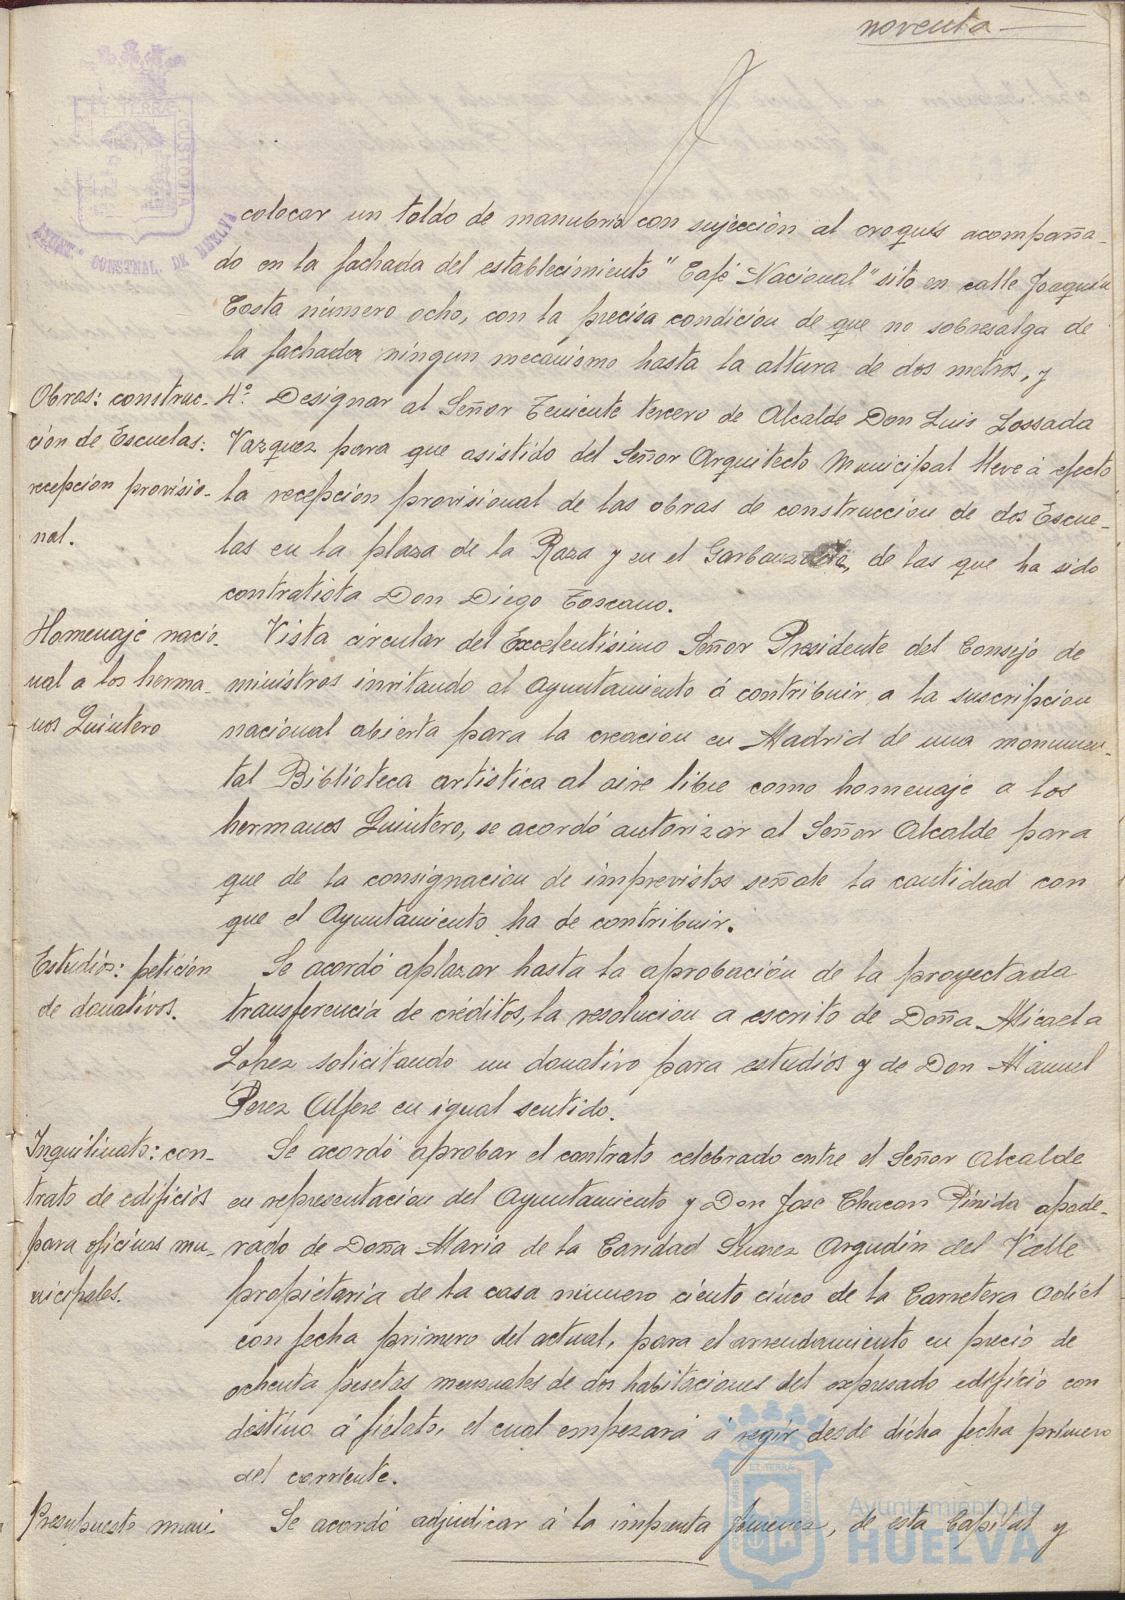 noventa
PORTUS MARIS ET TERRAE CUSTODIA
AYUNT.º CONSTNAL. DE HUELVA
colocar un toldo de manubrio con sujección al croquis acompaña-
do en la fachada del establecimiento "Café Nacional" sito en calle Joaquín
Costa número ocho, con la precisa condicion de que no sobresalga de
la fachada ningun mecanismo hasta la altura de dos metros, y
Obras: construc-
ción de Escuelas:
recepción provisio-
nal.
4º Designar al Señor Teniente tercero de Alcalde Don Luis Lossada
Vazquez para que asistido del Señor Arquitecto Municipal lleve á efecto
la recepcion provisional de las obras de construccion de dos Escue-
las en la plaza de la Raza y en el de las que ha sido
contratista Don Diego Toscano.
Homenaje nacio-
nal a los herma-
nos Quintero
Vista circular del Excelentísimo Señor Presidente del Consejo de
ministros invitando al Ayuntamiento á contribuir a la suscripcion
nacional abierta para la creacion en Madrid de una monumen-
tal Biblioteca artistica al aire libre como homenaje a los
hermanos Quintero, se acordó autorizar al Señor Alcalde para
que de la consignacion de imprevistos señale la cantidad con
que el Ayuntamiento ha de contribuir.
Estudios: petición
de donativos.
Se acordó aplazar hasta la aprobación de la proyectada
transferencia de créditos, la resolucion a escrito de Doña Micaela
López solicitando un donativo para estudios y de Don Manuel
Perez Alfere en igual sentido.
Inquilinato: con-
trato de edificios
para oficinas mu-
nicipales.
Se acordó aprobar el contrato celebrado entre el Señor Alcalde
en representacion del Ayuntamiento y Don Jose Chacon apode-
rado de Doña Maria de la Caridad Suarez Argudín del Valle
propietaria de la casa número ciento cinco de la Carretera Odiel
con fecha primero del actual, para el arrendamiento en precio de
ochenta pesetas mensuales de dos habitaciones del expresado edificio con
destino á fielato, el cual empezará á regir desde dicha fecha primero
del corriente.
Presupuesto muni-
Se acordó adjudicar á la imprenta Jimenez, de esta Capital y
Ayuntamiento de
HUELVA